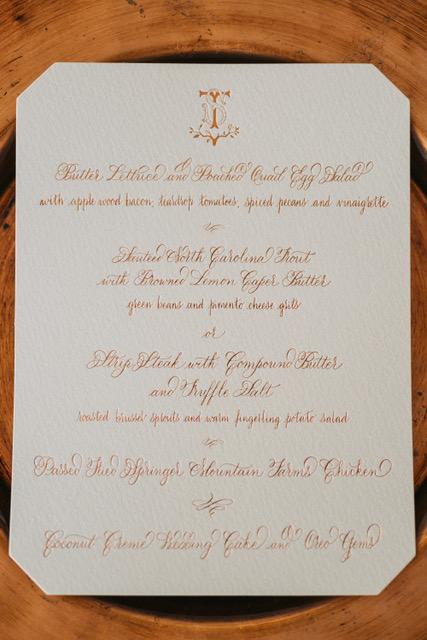 Butter Lettuce and Poached Quail Egg Salad
with apple wood bacon, teardrop tomatoes, spiced pecans and vinaigrette
Sauteed North Carolina Trout
with Browned Lemon Caper Butter
green beans and pimento cheese grits
or
Strip Steak with Compound Butter
and Truffle Salt
roasted brussel sprouts and warm fingerling potato salad
Passed Fried Springer Mountain Farms Chicken
Coconut Creme Wedding Cake and Oreo Gems